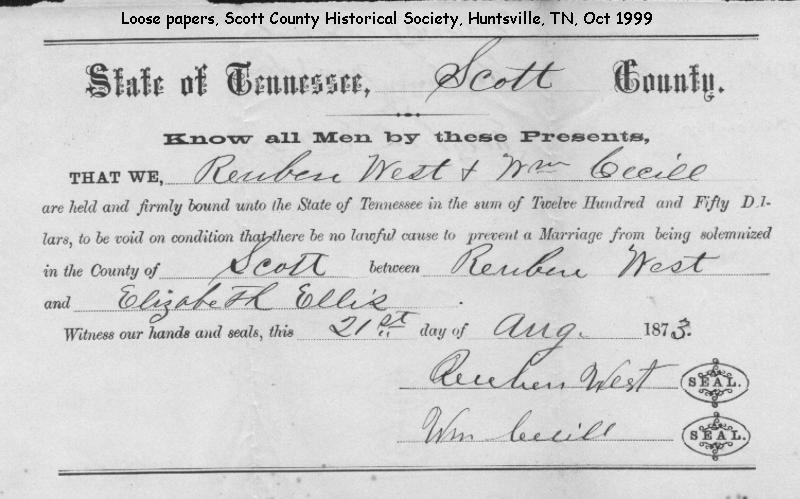 Loose papers, Scott County Historical Society, Huntsville, TN, Oct 1999
State of Tennessee, Scott County.
Know all Men by these Presents,
THAT WE, Reuben West & Wm Cecill
are held and firmly bound unto the State of Tennessee in the sum of Twelve Hundred and Fifty D l-
lars, to be void on condition that there be no lawful cause to prevent a Marriage from being solemnized
in the County of Scott between Reuben West
and Elizabeth Ellis
Witness our hands and seals, this 21st day of Aug. 1873.
Reuben West SEAL.
Wm Cecill SEAL.